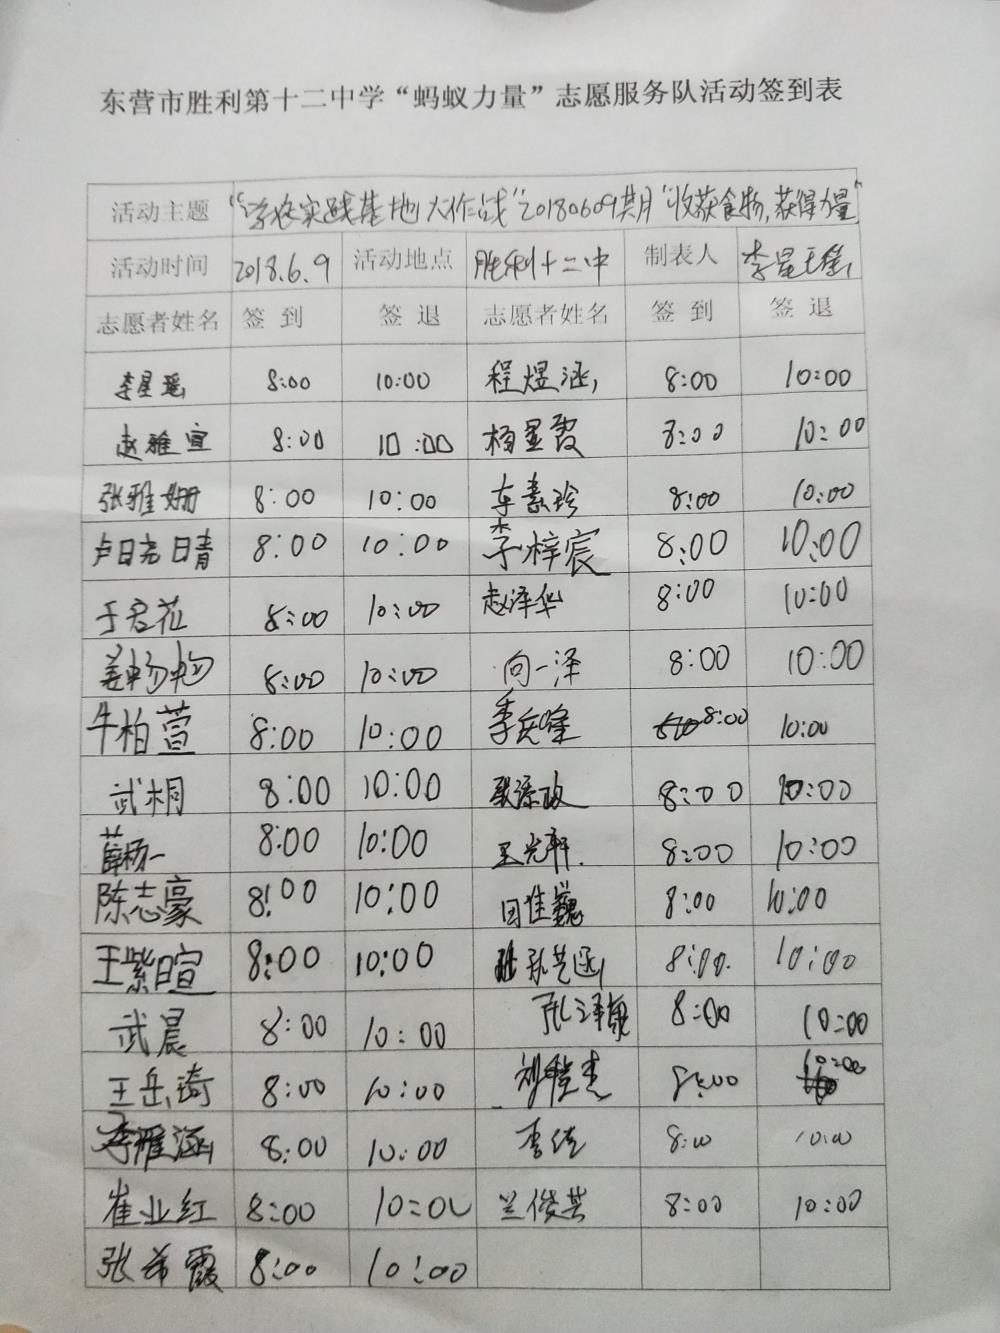 东营市胜利第十二中学“蚂蚁力量”志愿服务队活动签到表
活动主题 “学农实践基地大作战”20180609期“收获食物,获得力量”
活动时间 2018.6.9 活动地点 胜利十二中 制表人 李星
志愿者姓名 签到 签退 志愿者姓名 签到 签退
李星瑶 8:00 10:00 程煜涵 8:00 10:00
赵雅宣 8:00 10:00 杨显霞 8:00 10:00
张雅姗 8:00 10:00 车嘉珍 8:00 10:00
卢日尧日青 8:00 10:00 李梓宸 8:00 10:00
于君花 8:00 10:00 赵泽华 8:00 10:00
姜畅畅 8:00 10:00 向一泽 8:00 10:00
牛柏萱 8:00 10:00 李兵峰 8:00 10:00
武桐 8:00 10:00 8:00 10:00
薛杨一 8:00 10:00 王光轩 8:00 10:00
陈志豪 8:00 10:00 田佳巍 8:00 10:00
王紫暄 8:00 10:00 8:00 10:00
武晨 8:00 10:00 张泽康 8:00 10:00
王岳琦 8:00 10:00 8:00 10:00
李雅涵 8:00 10:00 李佳 8:00 10:00
崔业红 8:00 10:00 兰俊芸 8:00 10:00
张希霞 8:00 10:00